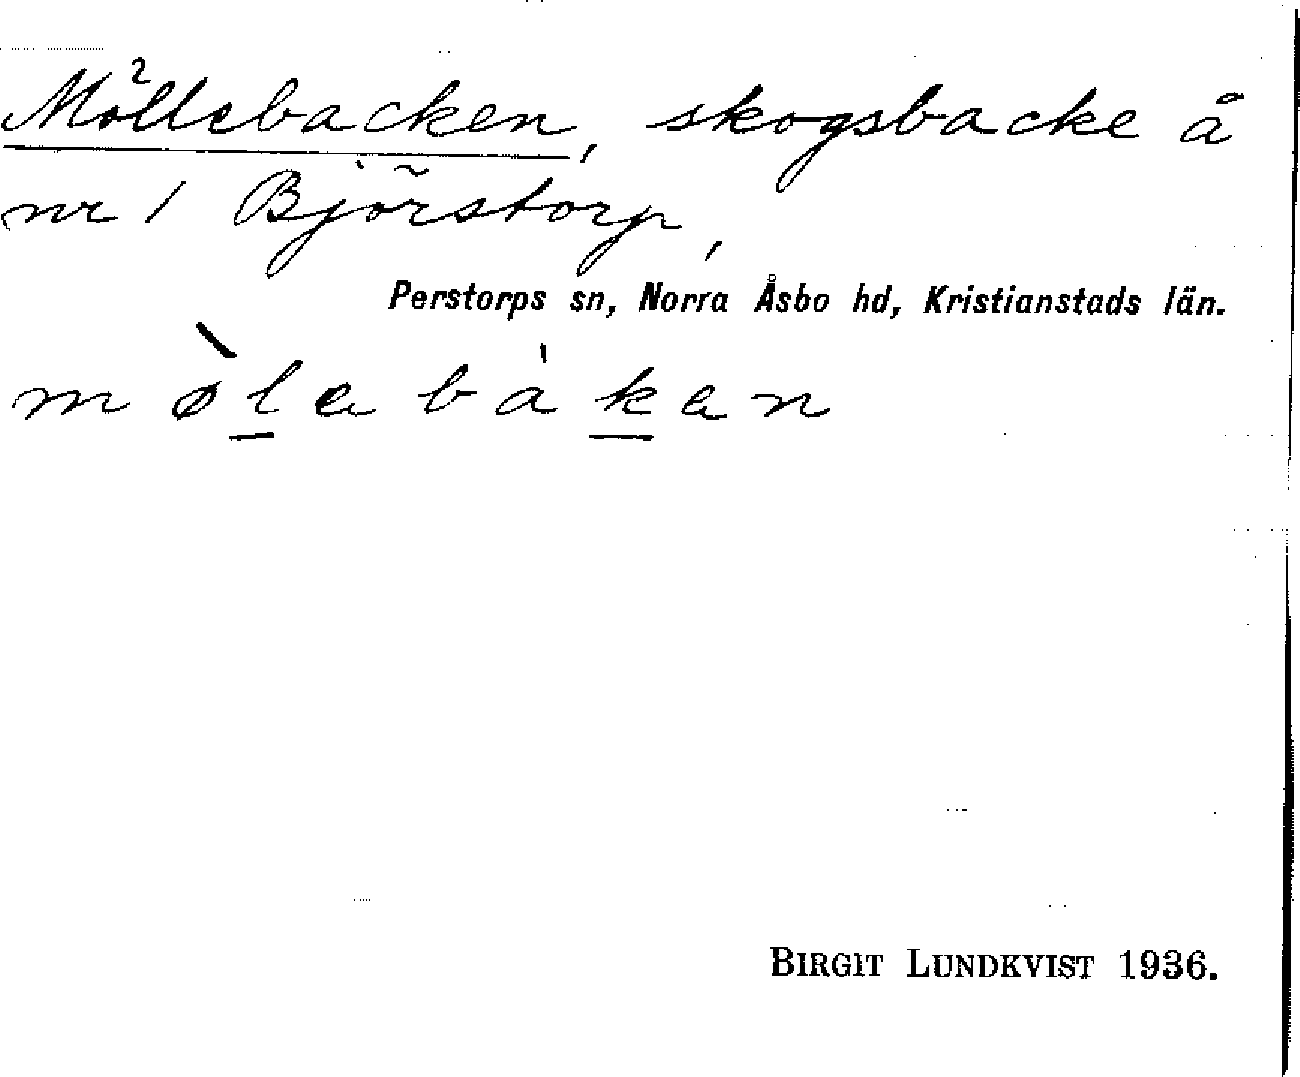 Möllebacken, skogsbacke å
nr 1 Björstorp,
Perstorps sn, Norra Åsbo hd, Kristianstads län.
mø̀l̲əbák̲ən
BIRGIT LUNDKVIST 1936.